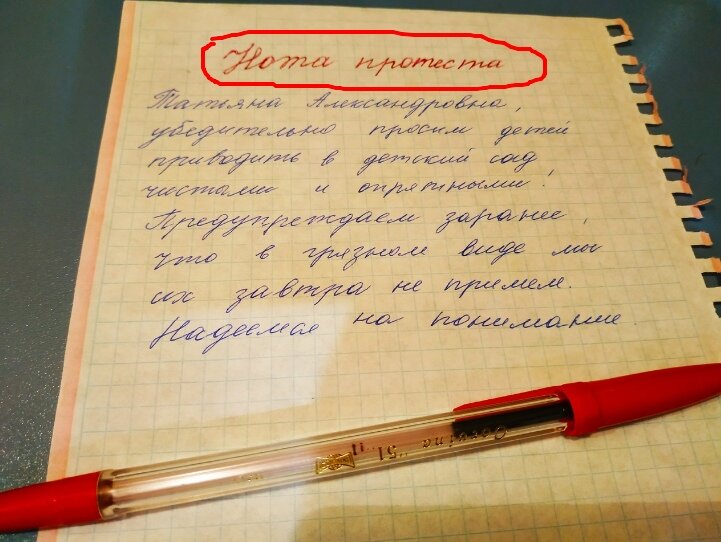 Нота протеста
Татьяна Александровна,
убедительно просим детей
приводить в детский сад
чистыми и опрятными!
Предупреждаем заранее,
что в грязном виде мы
их завтра не примем.
Надеемся на понимание.
Corvina "51